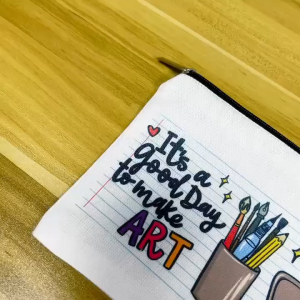 It's a
good Day
to make
ART